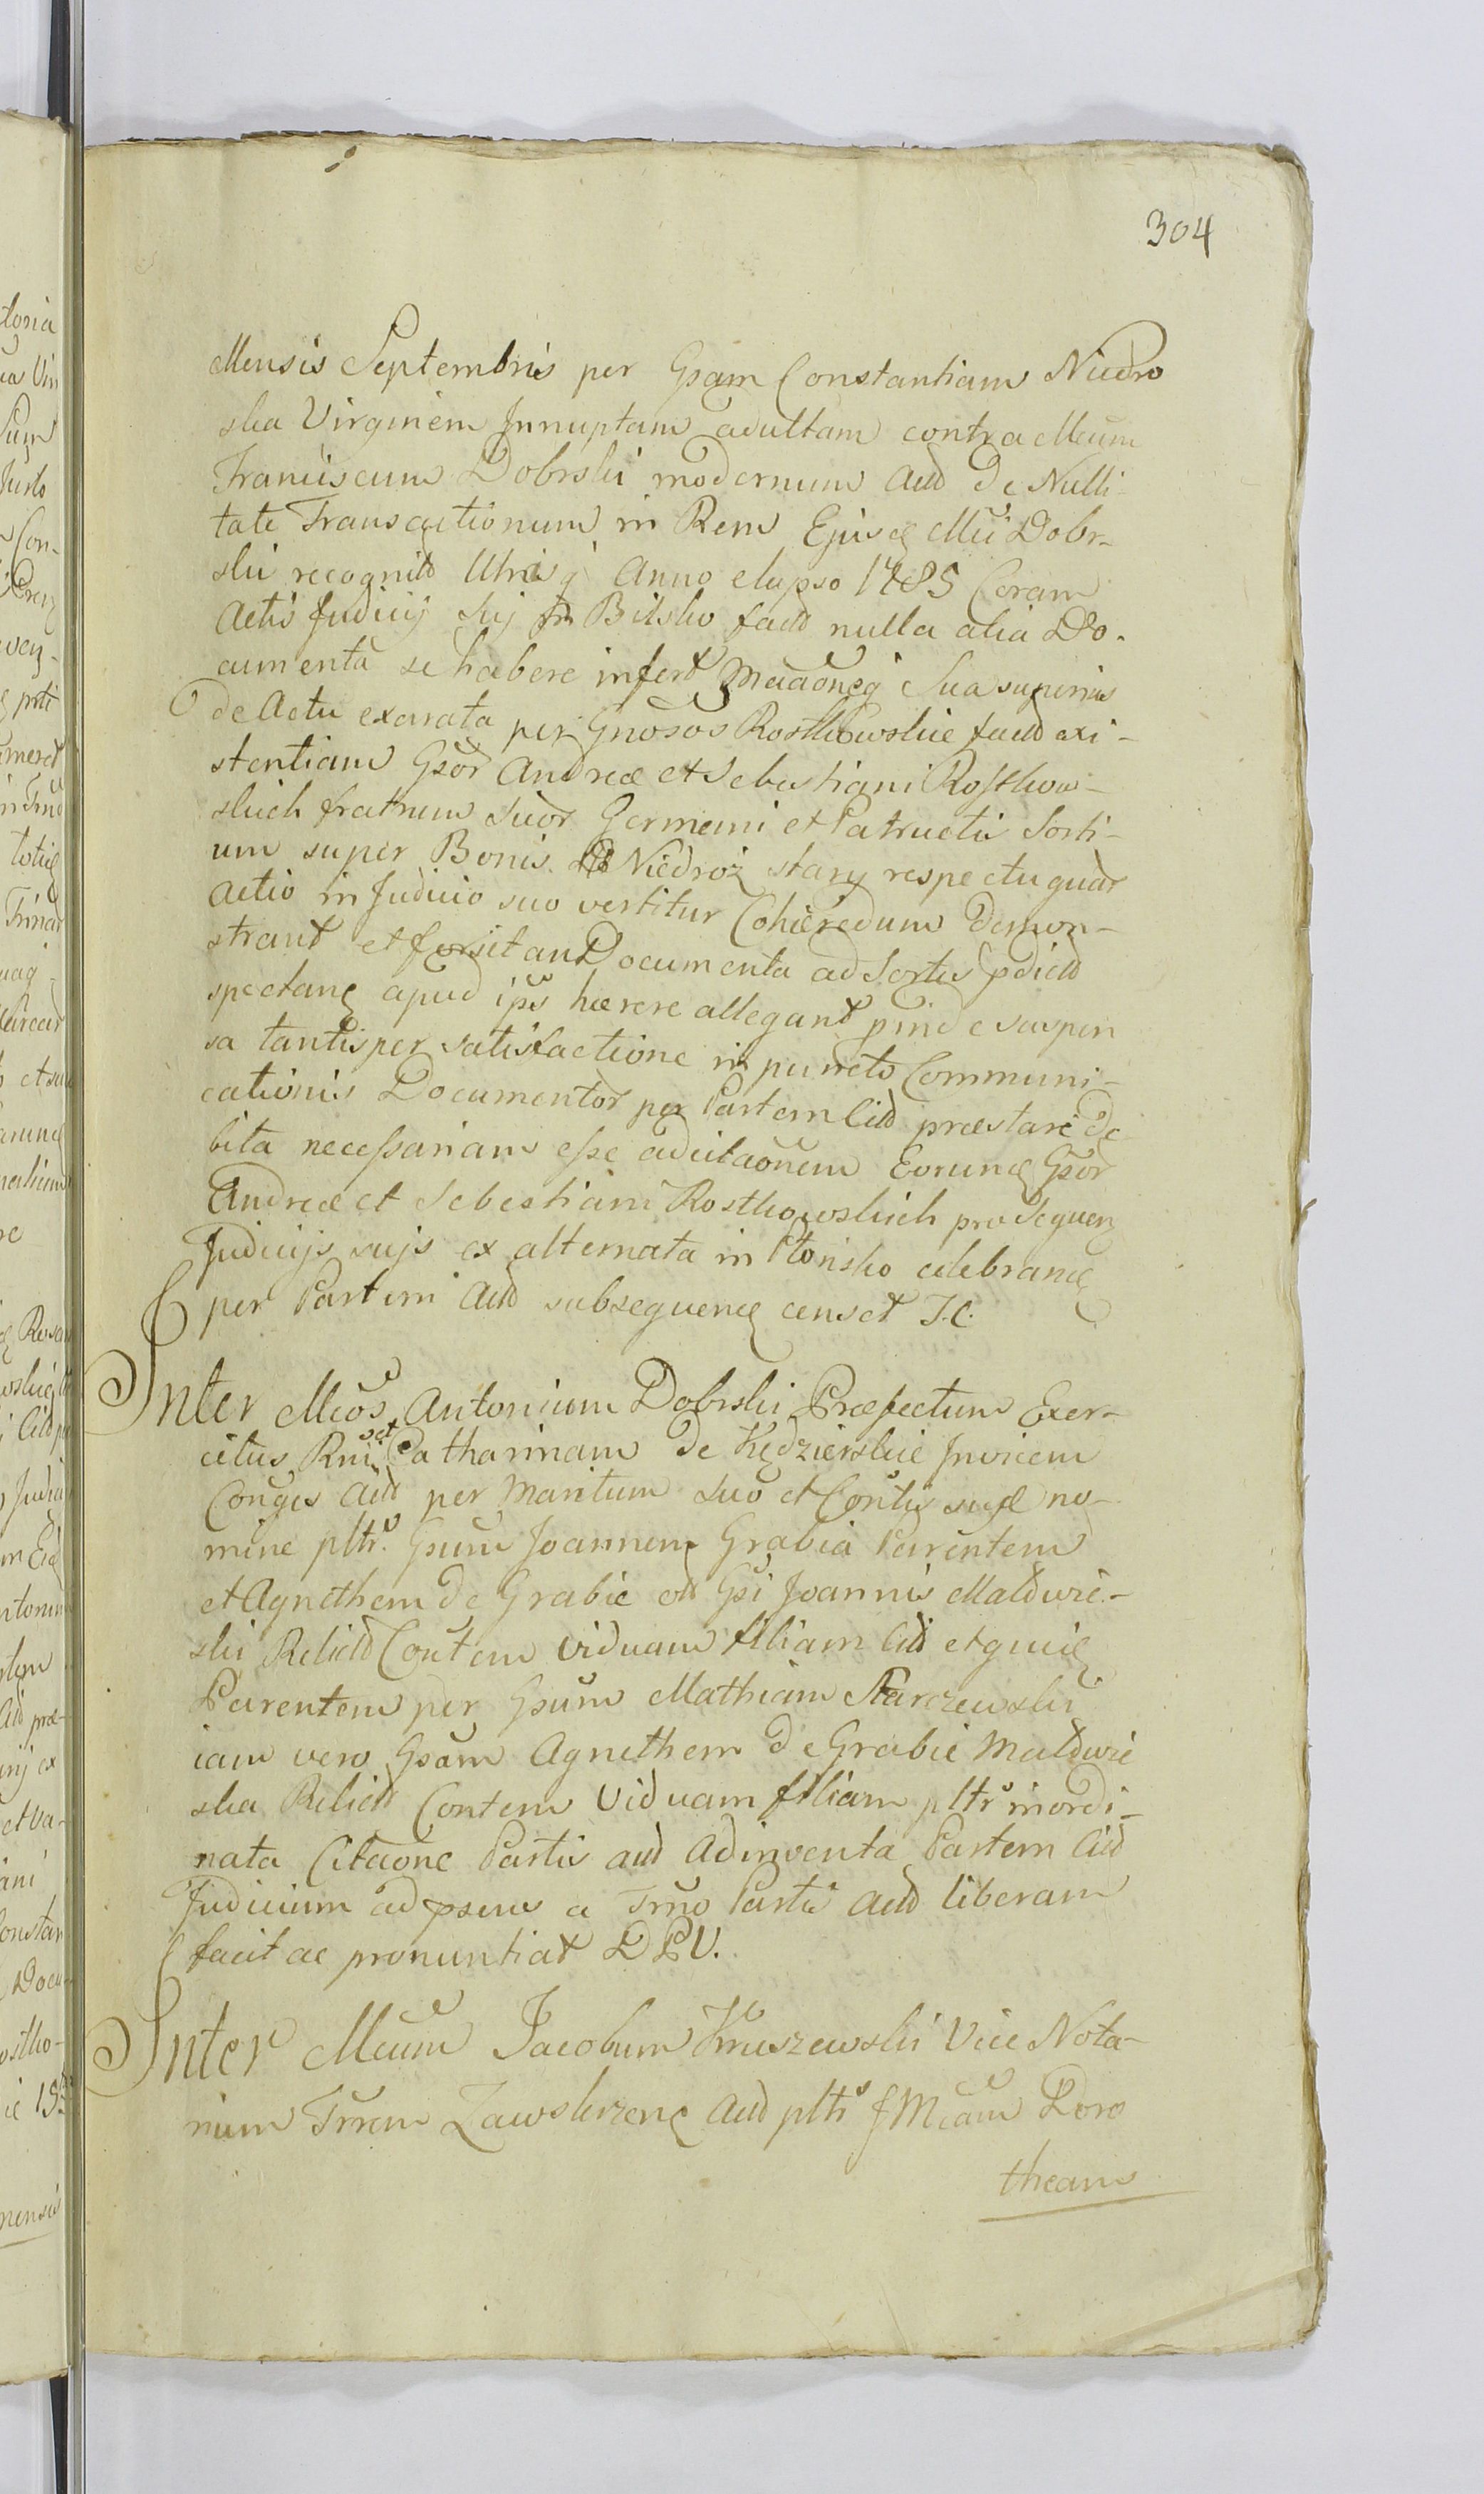 304
Mensis Septembris per Gsam Constantiam Niedro
ska Virginem Innuptam adultam contra Mcum
Franciscum Dobrski modernum Actd de Nulli-
tate Transactionum in Rem Ejusd Mci Dobr-
ski recognitd Utrisq Anno elapso 1785 Coram
Actis Judicij Sui in Bilsko factd nulla alia Do-
cumenta se habere infert
de Actu exarata per Gnosos Rostkowskie factd exi-
stentiam Gsor Andreæ et Sebastiani Rostkow-
skich fratrum Suor Germani et Patruelis Sorti-
um super Bonis Niedroż stary respectu quar
Actio in Judicio suo vertitur Cohæredum demon-
strant et forsitan Documenta ad Sortes pdictd
spectan apud ipos hærere allegant pinde suspen
sa tantisper satisfactione in puncto Communi-
cationis Documentor per Partem Citd præstari de
bita necessariam esse adcitaonem Eorund Gsor
Andreæ et Sebastiani Rostkowskich pro Sequen
Judicijs suis ex alternata in Płonsko celebrand
per Partem Actd subsequend censet I.C.
Inter Mcos Antonium Dobrski Præfectum Exer-
citus Rni et Catharinam de Kędzierskie Invicem
Conges Actd per Maritum suo et Contis suæ no-
mine pltr. Gsum Joannem Grabia Parentem
et Agnethem de Grabie od Gsi Joannis Małdwie-
ski Relictd Contem viduam filiam Citd et quid
Parentem per Gsum Mathiam Starczewski
iam vero Gsam Agnethem de Grabie Małdwie
ska Relictd Contem Viduam filiam pltr inordi-
nata Citaone Partis actd Adinventa Partem Citd
Judicium ad psens a Trno Partis Actd liberam
facit ac pronuntiat D P V.
Inter Mcum Jacobum Kruszewski Vice Nota-
rium Trrem Zawskrzen Actd pltr Mcam Doro
theam